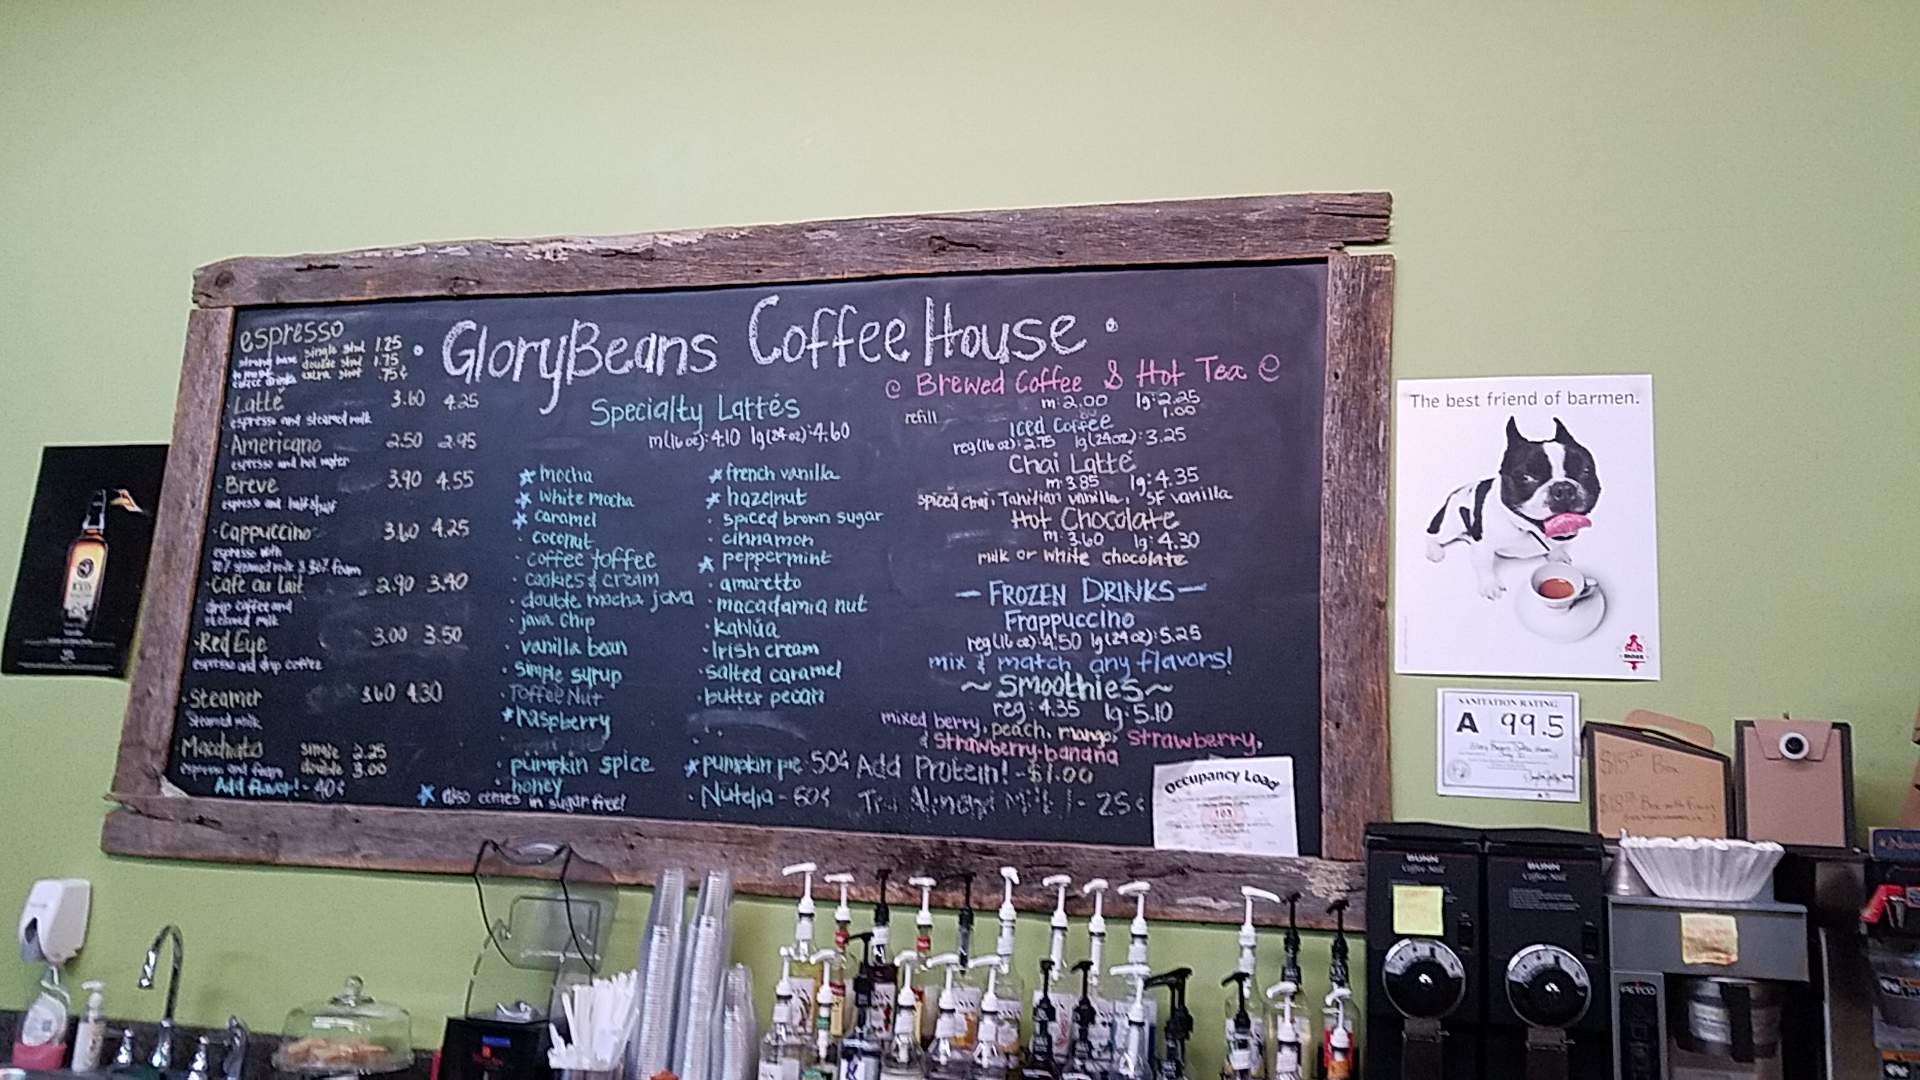 GloryBeans Coffee House
espresso
single shot 1.25
double shot 1.75
extra shot .75¢
coffee drinks
Latté 3.60 4.25
espresso and steamed milk
Americano 2.50 2.95
espresso and hot water
Breve 3.90 4.55
espresso and half & half
Cappuccino 3.60 4.25
espresso with
steamed milk & 30% foam
Café au Lait 2.90 3.40
drip coffee and
steamed milk
Red Eye 3.00 3.50
espresso and drip coffee
Steamer 3.60 4.30
Steamed milk
Macchiato single 2.25
espresso and foam double 3.00
Add flavor! - 40¢
Specialty Lattés
m(16 oz): 4.10 lg(24 oz): 4.60
mocha
white mocha
caramel
coconut
coffee toffee
cookies & cream
double mocha java
java chip
vanilla bean
simple syrup
Toffee Nut
raspberry
pumpkin spice
honey
also comes in sugar free!
french vanilla
hazelnut
spiced brown sugar
cinnamon
peppermint
amaretto
macadamia nut
kahlúa
Irish cream
salted caramel
butter pecan
pumpkin pie 50¢
Nutella - 60¢
Brewed Coffee & Hot Tea
m: 2.00 lg: 2.25
refill 1.00
Iced Coffee
reg(16 oz): 2.75 lg(24oz): 3.25
Chai Latté
m: 3.85 lg: 4.35
spiced chai, Tahitian vanilla, SF vanilla
Hot Chocolate
m: 3.60 lg: 4.30
milk or white chocolate
— FROZEN DRINKS —
Frappuccino
reg(16 oz): 4.50 lg(24 oz): 5.25
mix & match any flavors!
~ Smoothies ~
reg: 4.35 lg: 5.10
mixed berry, peach, mango, strawberry,
& strawberry-banana
Add Protein! - $1.00
Try Almond Milk! - 25¢
Occupancy Load
103
The best friend of barmen.
SANITATION RATING
A 99.5
$15.00 Box
BUNN
Coffee Mill
BUNN
Coffee Mill
FETCO